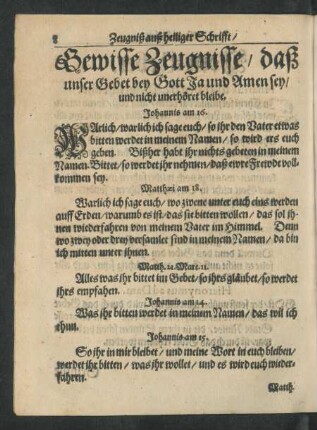 8 Zeugniß auß heiliger Schrifft/
Gewisse Zeugnisse/ daß
unser Gebet bey Gott Ja und Amen sey/
und nicht unerhöret bleibe.
Johannis am 16.
WArlich/ warlich ich sage euch/ so ihr den Vater etwas
bitten werdet in meinem Namen/ so wird ers euch
geben. Bißher habt ihr nichts gebeten in meinem
Namen. Bittet/ so werdet ihr nehmen/ daß ewre Frewde voll-
kommen sey.
Matthæi am 18.
Warlich ich sage euch/ wo zween unter euch eins werden
auff Erden/ warumb es ist/ das sie bitten wollen/ das sol ih-
nen wiederfahren von meinem Vater im Himmel. Denn
wo zwey oder drey versamlet sind in meinem Namen/ da bin
ich mitten unter ihnen.
Matth. 21. Marc. 11.
Alles was ihr bittet im Gebet/ so ihrs gläubet/ so werdet
ihrs empfahen.
Johannis am 14.
Was ihr bitten werdet in meinem Namen/ das wil ich
thun.
Johannis am 15.
So ihr in mir bleibet/ und meine Wort in euch bleiben/
werdet ihr bitten/ was ihr wollet/ und es wird euch wieder-
fahren.
Matth.